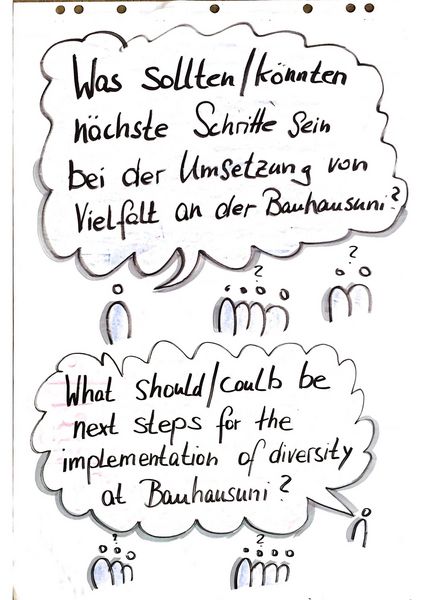 Was sollten/könnten
nächste Schritte sein
bei der Umsetzung von
Vielfalt an der Bauhausuni?
?
?
What should/coulb be
next steps for the
implementation of diversity
at Bauhausuni?
?
?